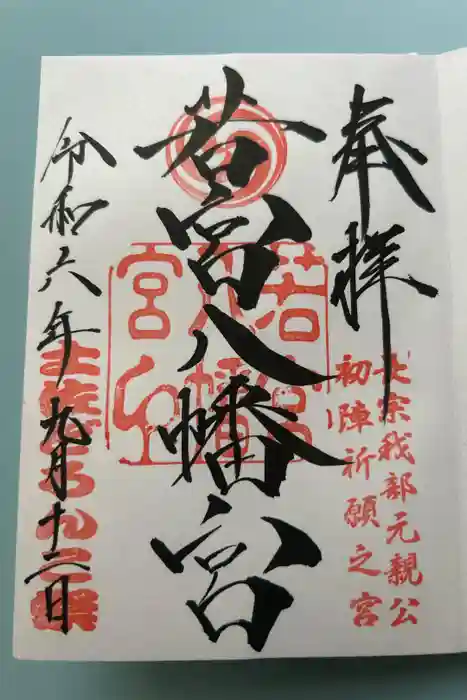 奉拝
長宗我部元親公
初陣祈願之宮
若宮八幡宮
若宮八幡宮
令和六年九月十二日